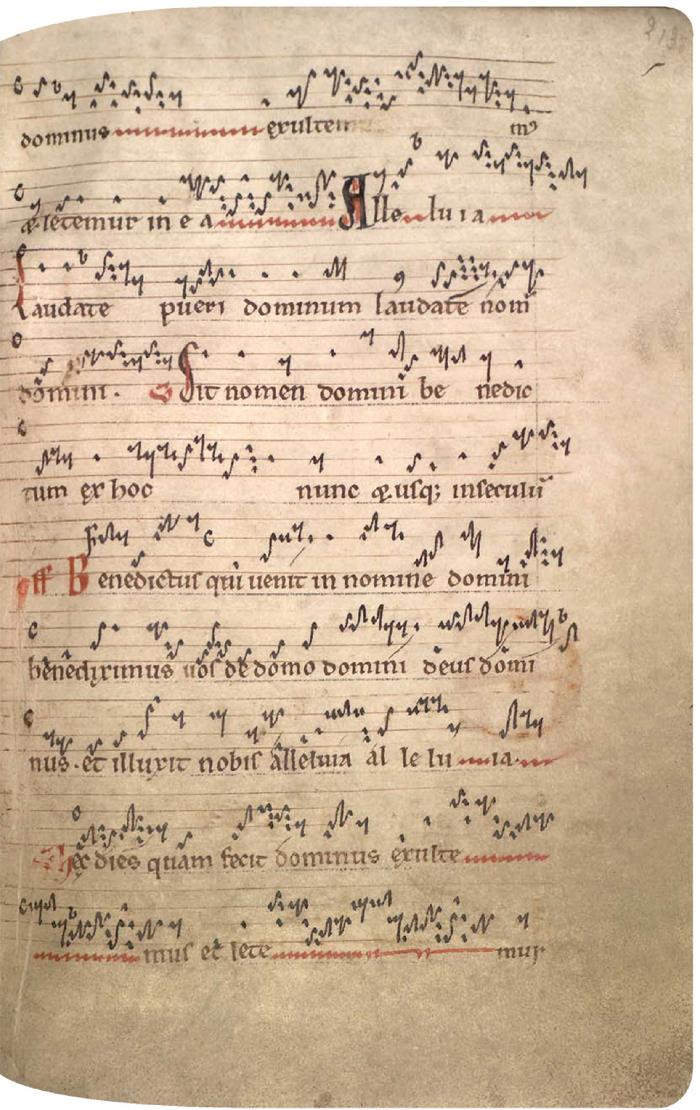 dominus exultem mꝰ
& letemur in e a Alle lu i a
Laudate pueri dominum laudate nom̄
domini. Sit nomen domini be nedic
tum ex hoc nunc & usq; inseculū
off Benedictus qui uenit in nomine domini
benediximus uos de domo domini deus domi
nus. et illuxit nobis alleluia al le lu ia.
Hec dies quam fecit dominus exulte
mus et lete mur